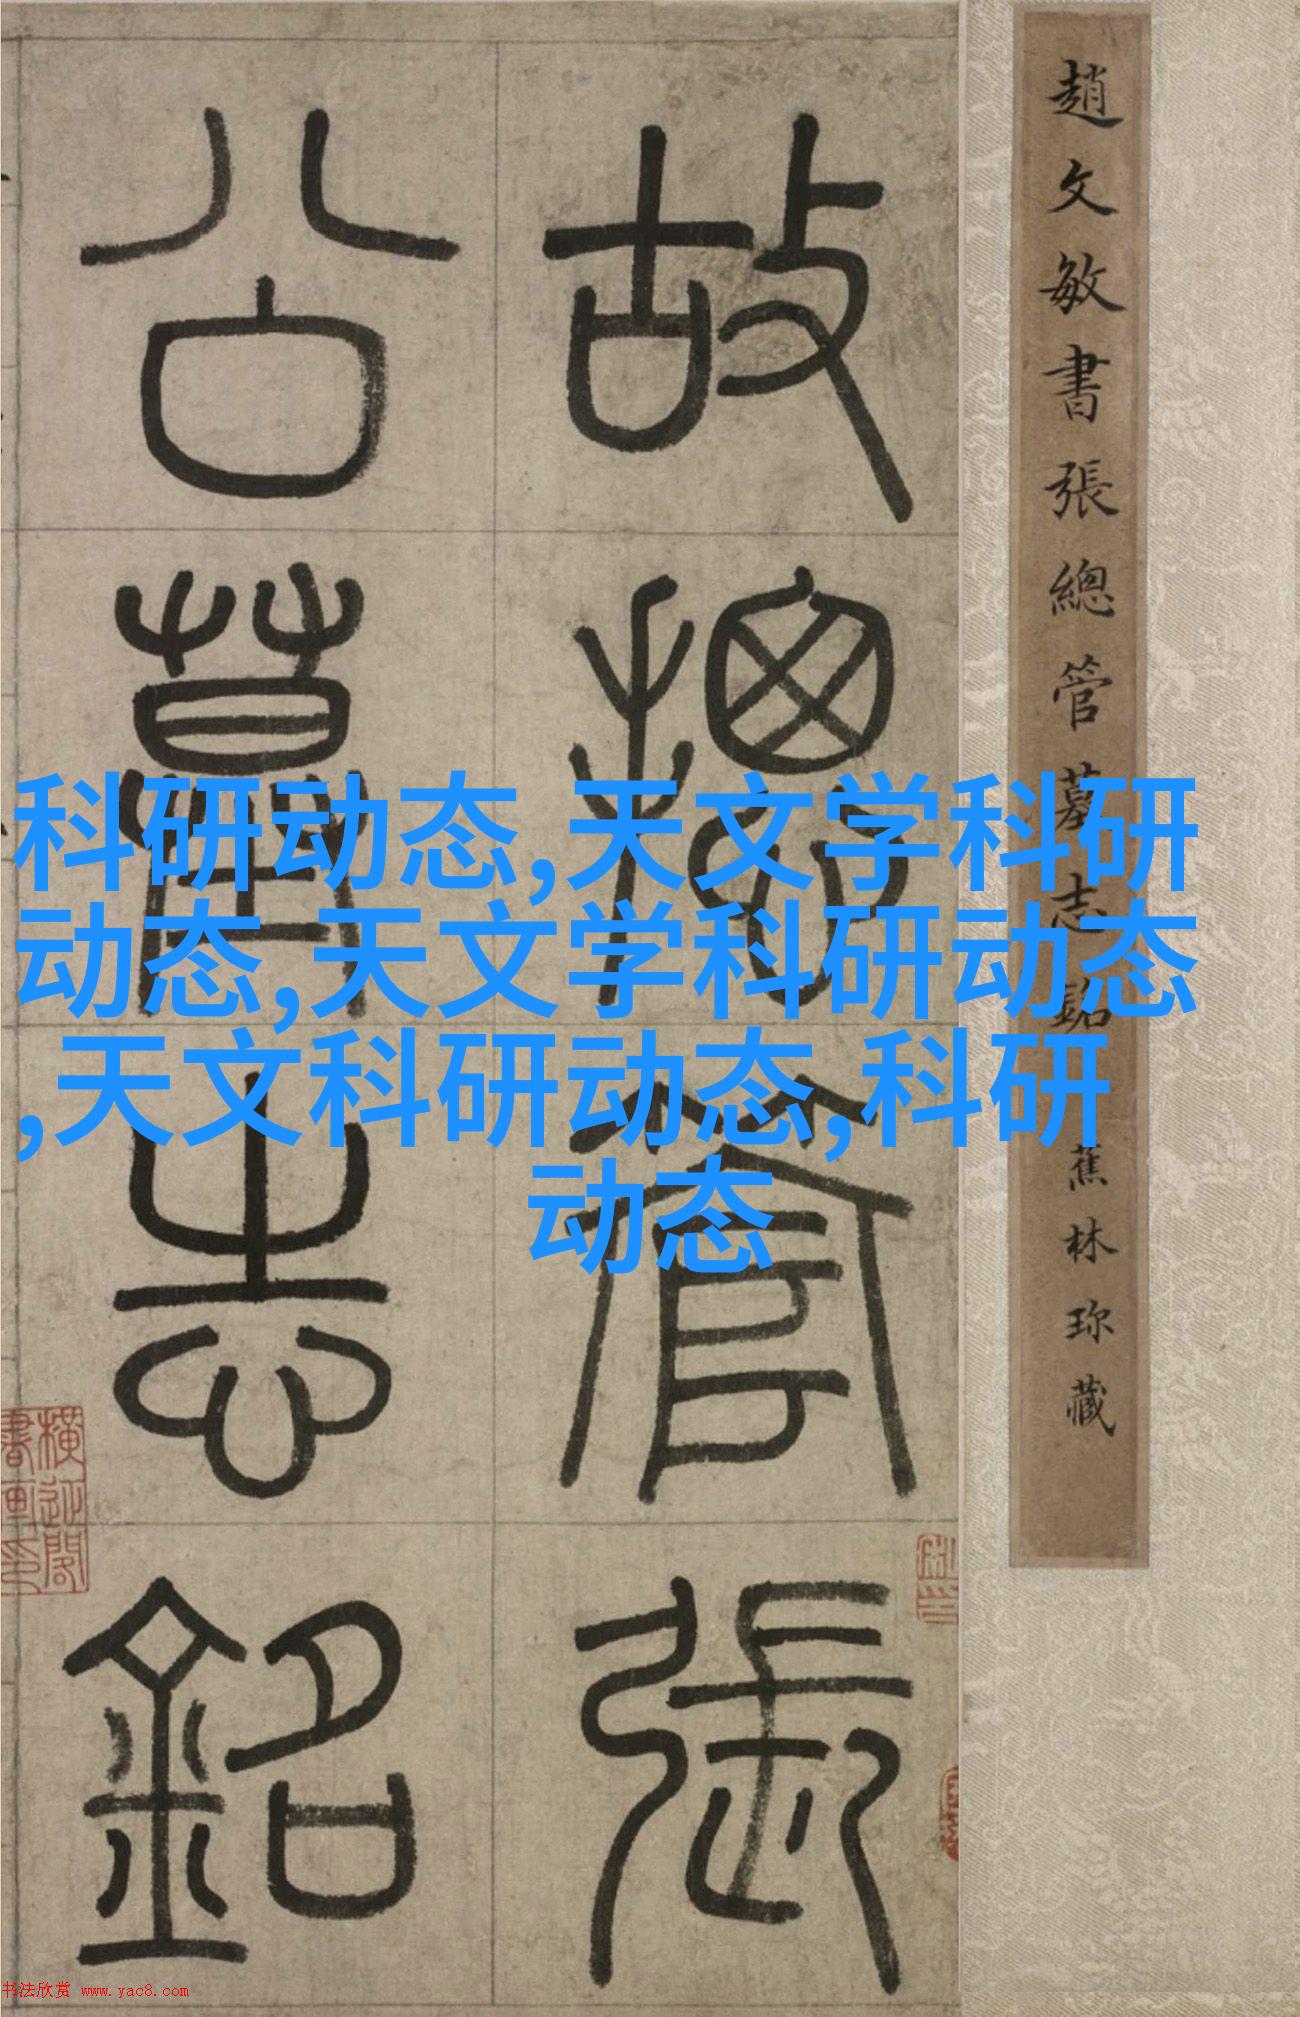 趙文敏書張總管墓志銘
蕉林珎藏
故總管張
公墓志銘
科研动态,天文学科研
动态,天文学科研动态
,天文科研动态,科研
动态
书法欣赏 www.yac8.com